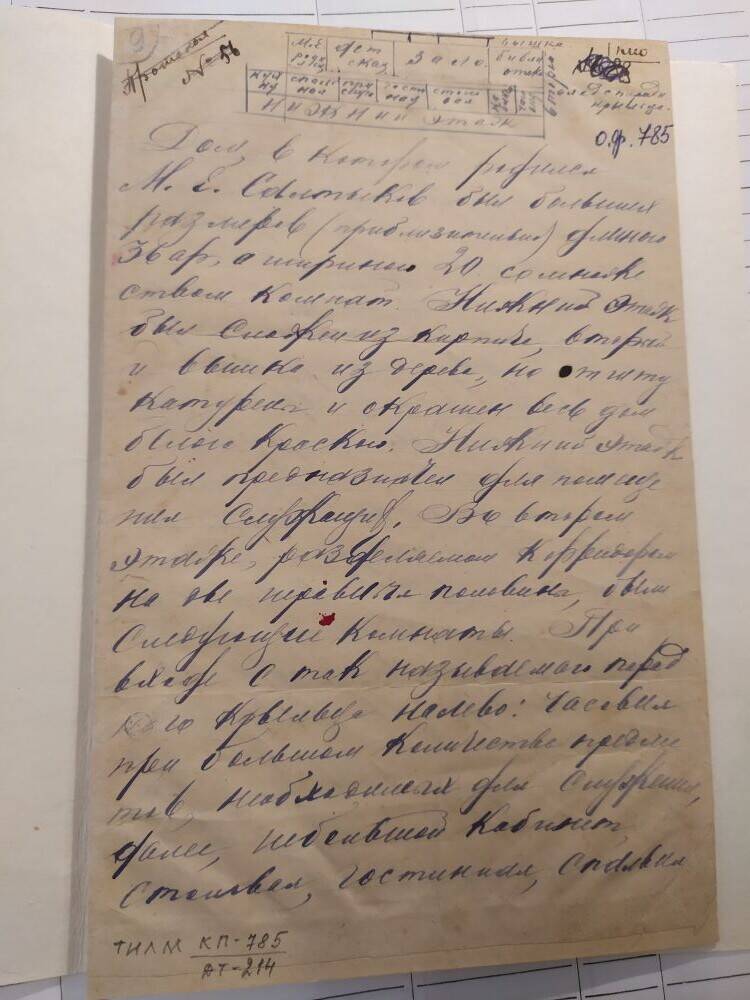 9
Протокол
№ 56
М.Е. дет зало вышка
родил сказ библи
отека
кух спаль гости столо
ню ная ную вая
Нижний этаж
КПО
крыльцо
о.ф. 785
Дом, в котором родился
М. Е. Салтыков был больших
размеров (приблизительно) длиною
36 ар, а шириною 20. со множе
ством комнат. Нижний этаж
был сложен из кирпича, второй
и вышка из дерева, но отшту
катурен и окрашен весь дом
белою краскою. Нижний этаж
был предназначен для помеще
ния служащих. Во втором
этаже, разделяемом корридором
на две неравныя половины, были
следующие комнаты. При
входе с так называемого перед
него крыльца налево: часовня
при большом количестве предме
тов, необходимых для служения,
далее, небольшой кабинет,
столовая, гостинная, спальня
ТИЛМ КП-785
ДТ-214